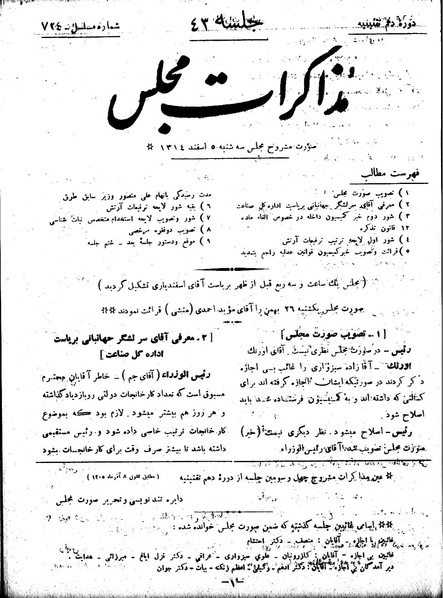 دورهٔ دهم تقنینیه
جلسه ۴۳
شماره مسلسل - ۷۲۴
مذاکرات مجلس
صورت مشروح مجلس سه شنبه ۵ اسفند ۱۳۱۴ *
فهرست مطالب
۱ ) تصویب صورت مجلس
۲ ) معرفی آقای سرلشگر جهانبانی بریاست اداره کل صناعت
۳ ) شور دوم خبر کمیسیون داخله در خصوص الغاء ماده
۱۲ قانون تذکره
۴ ) شور اول لایحه ترتیب ترفیعات آرتش
۵ ) قرائت وتصویب خبر کمیسیون قوانین عدلیه راجع بتمدید
مدت رسیدگی باتهام علی منصور وزیر سابق طرق
۶ ) بقیه شور لایحه ترفیعات آرتش
۷ ) شور وتصویب لایحه استخدام متخصص نبات شناسی
۸ ) تصویب دوفقره مرخصی
۹ ) موقع ودستور جلسهٔ بعد - ختم جلسه
( مجلس یک ساعت و سه ربع قبل از ظهر بریاست آقای اسفندیاری تشکیل گردید )
صورت مجلس یکشنبه ۲۶ بهمن را آقای مؤید احمدی (منشی) قرائت نمودند **
[ ۱ - تصویب صورت مجلس ]
رئیس - در صورت مجلس نظری نیست؟ آقای اورنگ
اورنگ - آقا زاده سبزواری را غائب بی اجازه
ذکر کردند در صورتیکه ایشان اجازه گرفته اند برای
کسالتی که داشته اند و به کمیسیون فرستاده شده باید
اصلاح شود
رئیس - اصلاح میشود. نظر دیگری نیست؟ (خیر)
صورت مجلس تصویب شد. آقای رئیس الوزراء
[ ۲ - معرفی آقای سر لشگر جهانبانی بریاست
اداره کل صناعت ]
رئیس الوزراء (آقای جم) - خاطر آقایان محترم
مسبوق است که تعداد کارخانجات دولتی روبازدیاد گذاشته
و هر روز هم بیشتر میشود. لازم بود که بموضوع
کارخانجات ترتیب خاصی داده شود و رئیس مستقیمی
داشته باشد تا بیشتر صرف وقت برای کارخانجات بشود
* عین مذاکرات مشروح چهل و سومین جلسه از دورهٔ دهم تقنینیه
(مطابق قانون ۸ آذرماه ۱۳۰۵)
دایره تند نویسی و تحریر صورت مجلس
** اسامی غائبین جلسه گذشته که ضمن صورت مجلس خوانده شده :
غائبین با اجازه - آقایان : منصف - دکتر احتشام
غائبین بی اجازه - آقایان : کازرونیان - علوی سبزواری - عراقی - دکتر قزل ایاغ - میرزائی - هدایت
دیر آمدگان بی اجازه - آقایان : دکتر ادهم - وکیلی - اعظم زنگنه - بیات - دکتر جوان
-۱-